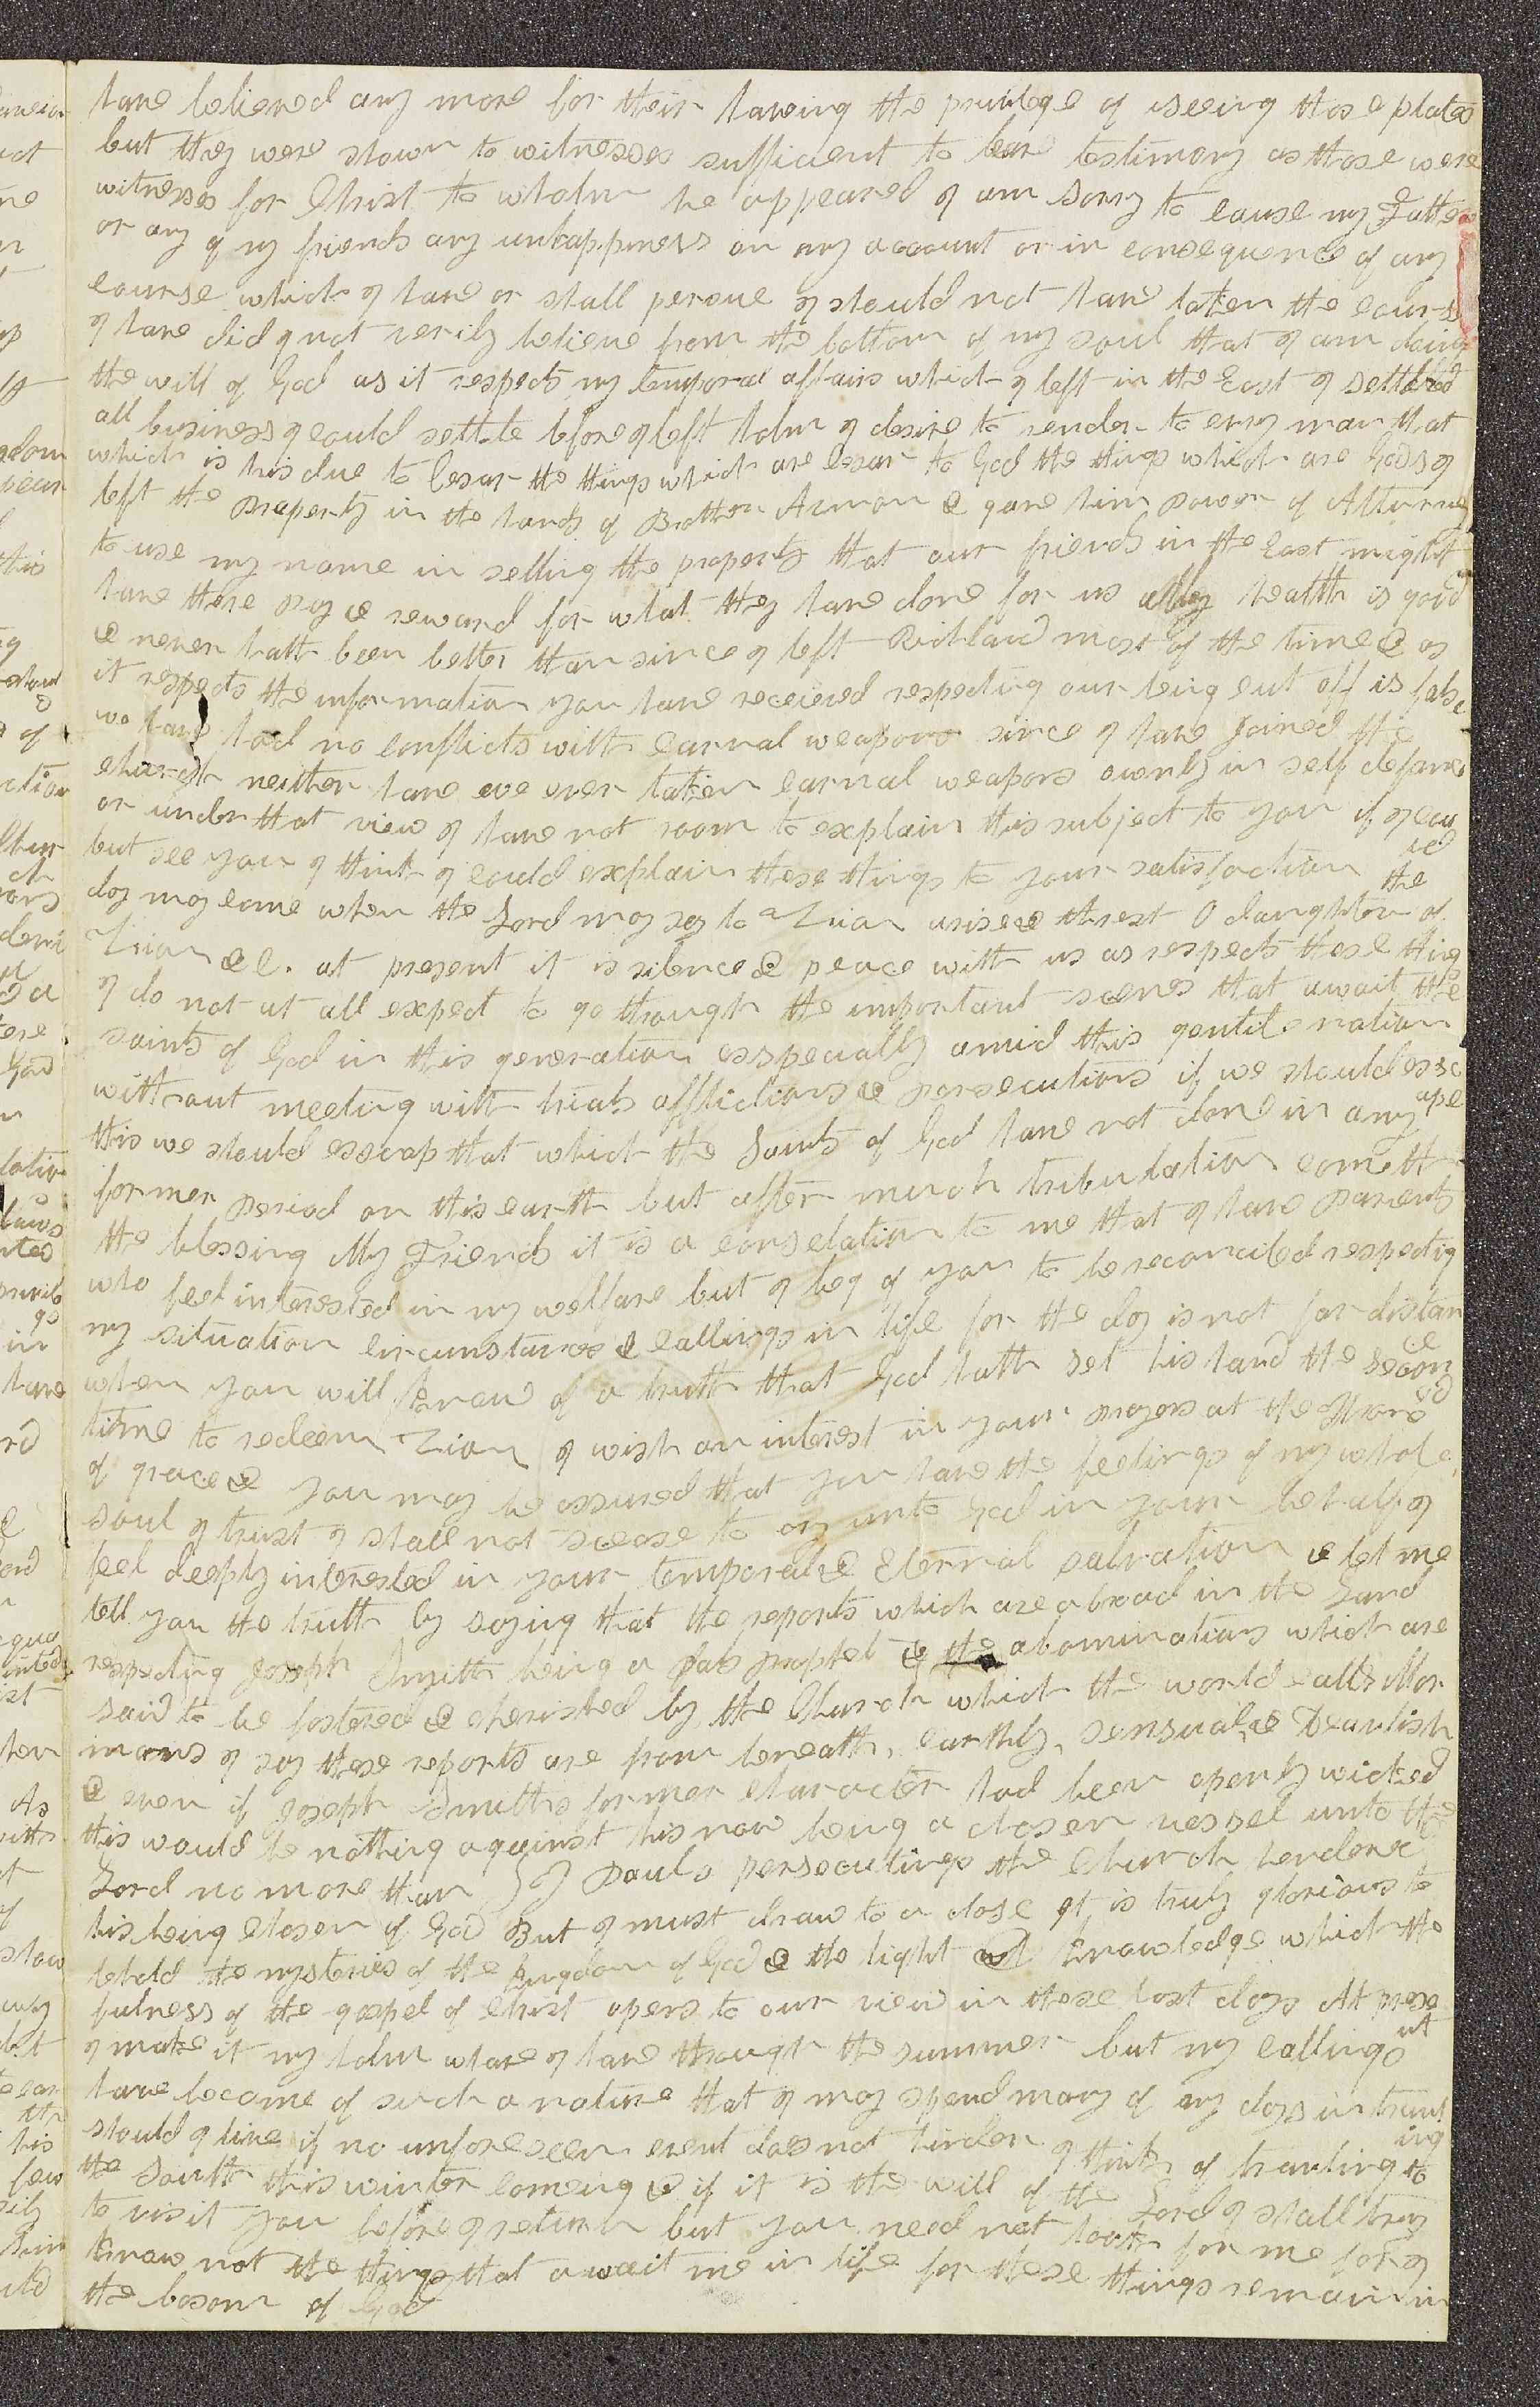 have believed any more for their having the privilege of seeing those plates
but they were shown to witnesses sufficient to bear testimony as those were
witnesses for Christ to whohm he appeared I am sorry to cause my Father
or any of my friends any unhappiness on my account or in consequence of any
course which I have or shall persue I should not have taken the course
I have did I not verily believe from the bottom of my soul that I am doing
the will of God as it respects my temporal affairs which I left in the East I settled
all business I could settle before I left hohm I desire to render to evry man that
which is his due to Cesar the things which are Cesars to God the things which are Gods I
left the property in the hands of Brother Asmon & gave him power of Atturney
to use my name in selling the property that our friends in the East might
have there pay & reward for what they have done for us My health is good
& never hath been better than since I left Richland most of the time & as
it respects the information you have received respecting our being cut off is false
we have had no conflicts with carnal weapons since I have Joined the
church neither have we ever taken carnal weapons ownly in self defence
or under that view I have not room to explain this subject to you if I could
but see you I think I could explain these things to your satisfaction the
day may come when the Lord may say to Zion arise & thresh O daughter of
Zion &c. at present it is silence & peace with us as respects these things
I do not at all expect to go through the important scenes that await the
saints of God in this generation esspecially amid this gentile nation
without meeting with trials afflictions & persecutions if we should esscape
this we should esscap that which the Saints of God have not done in any
former period on this earth but after much tribulation cometh
the blessing My Friends it is a conselation to me that I have parents
who feel interested in my welfare but I beg of you to be reconciled respecting
my situation circumstances & callings in life for the day is not far distance
when you will know of a truth that God hath set his hand the second
time to redeem Zion I wish an interest in your prayers at the Throne
of grace & you may be assured that you have the feelings of my whole
soul I trust I shall not scease to cry unto God in your behalf I
feel deeply interested in your temporal & Eternal salvation & let me
tell you the truth by saying that the reports which are abroad in the Land
respecting Joseph Smith being a fals prophet & the abominations which are
said to be fostered & cherished by the Church which the world calls Mor
mons I say these reports are from beneath, earthly, sensual, & Deavlish
& even if Joseph Smiths former character had been openly wicked
this would be nothing against his now being a chosen vessel unto the
Lord no more than St Pauls persecutings the Church hendered
his being chosen of God But I must draw to a close It is truly glorious to
behold the mysteries of the kingdom of God & the light & knowledge which the
fulness of the gospel of Christ opens to our view in these last days At present
I make it my hohm whare I have through the summer but my callings
have become of such a nature that I may spend many of my days in traveling
should I live if no unforeseen event does not hinder I think of traveling to
the South this winter comeing & if it is the will of the Lord I shall try
to visit you before I return but you need not look for me for I
know not the things that await me in life for these things remain in
the bosom of God